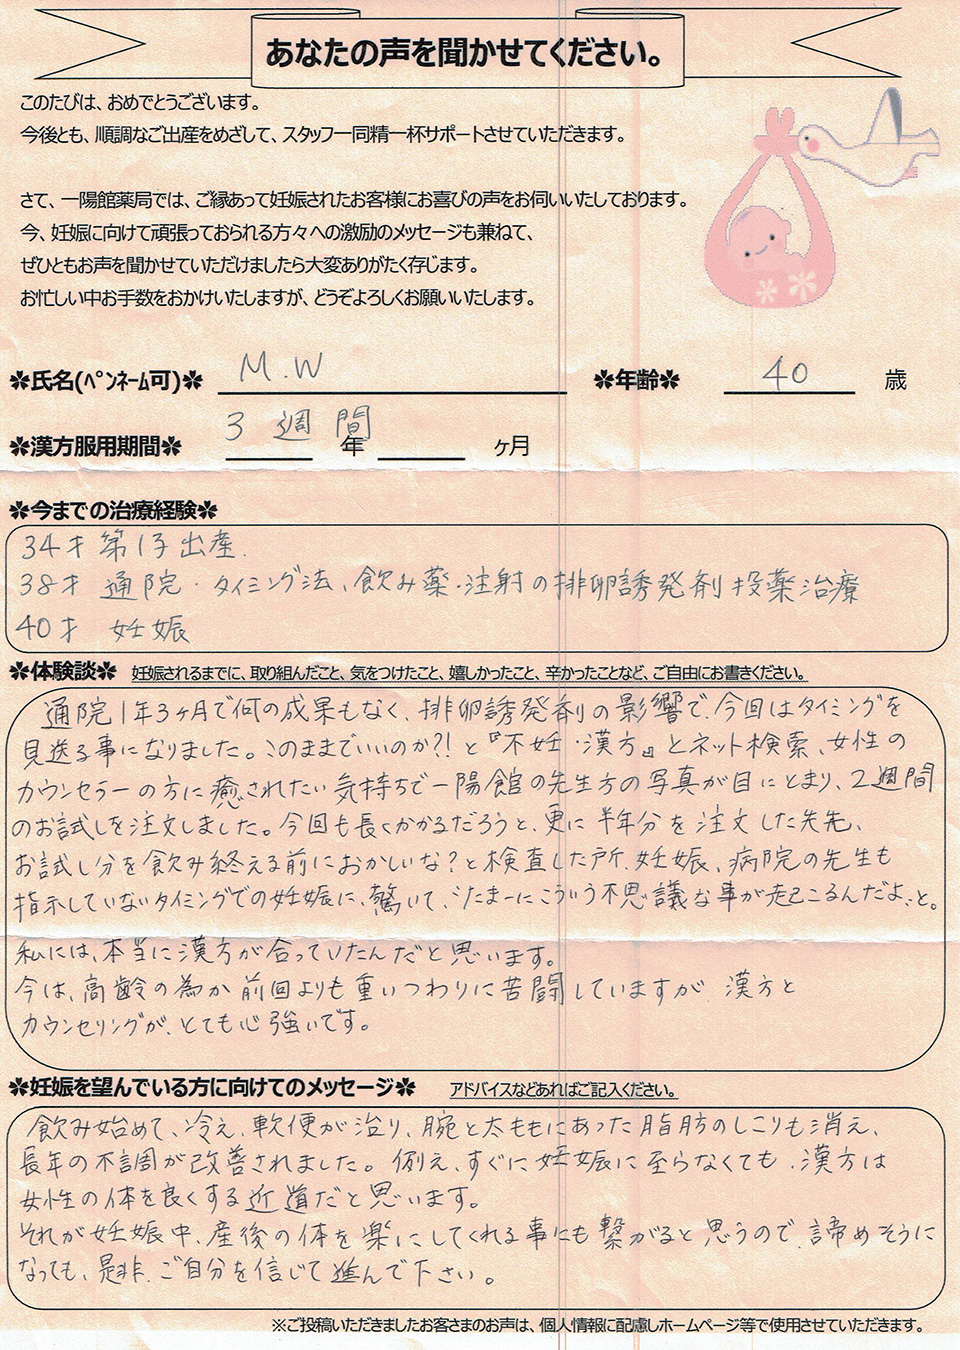 あなたの声を聞かせてください。
このたびは、おめでとうございます。
今後とも、順調なご出産をめざして、スタッフ一同精一杯サポートさせていただきます。
さて、一陽館薬局では、ご縁あって妊娠されたお客様にお喜びの声をお伺いいたしております。
今、妊娠に向けて頑張っておられる方々への激励のメッセージも兼ねて、
ぜひともお声を聞かせていただけましたら大変ありがたく存じます。
お忙しい中お手数をおかけいたしますが、どうぞよろしくお願いいたします。
✽氏名(ペンネーム可)✽ M.W ✽年齢✽ 40 歳
✽漢方服用期間✽ 3 週間 年 ヶ月
✽今までの治療経験✽
34才 第1子出産.
38才 通院・タイミング法、飲み薬・注射の排卵誘発剤投薬治療
40才 妊娠
✽体験談✽ 妊娠されるまでに、取り組んだこと、気をつけたこと、嬉しかったこと、辛かったことなど、ご自由にお書きください。
通院1年3ヶ月で何の成果もなく、排卵誘発剤の影響で、今回はタイミングを
見送る事になりました。このままでいいのか?!と『不妊・漢方』とネット検索、女性の
カウンセラーの方に癒されたい気持ちで一陽館の先生方の写真が目にとまり、2週間
のお試しを注文しました。今回も長くかかるだろうと、更に半年分を注文した矢先、
お試し分を飲み終える前におかしいな?と検査した所、妊娠、病院の先生も
指示していないタイミングでの妊娠に、驚いて、「たまーにこういう不思議な事が起こるんだよ」と。
私には、本当に漢方が合っていたんだと思います。
今は、高齢の為か前回よりも重いつわりに苦闘していますが、漢方と
カウンセリングが、とても心強いです。
✽妊娠を望んでいる方に向けてのメッセージ✽ アドバイスなどあればご記入ください。
飲み始めて、冷え、軟便が治り、腕と太ももにあった脂肪のしこりも消え、
長年の不調が改善されました。例え、すぐに妊娠に至らなくても、漢方は
女性の体を良くする近道だと思います。
それが妊娠中、産後の体を楽にしてくれる事にも繋がると思うので、諦めそうに
なっても、是非、ご自分を信じて進んで下さい。
※ご投稿いただきましたお客さまのお声は、個人情報に配慮しホームページ等で使用させていただきます。